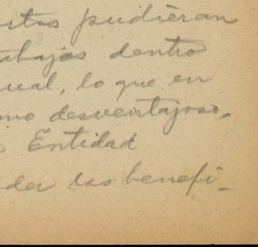 pudieran
dentro
ual, lo que en
mo desventajoso,
Entidad
der las benefi-